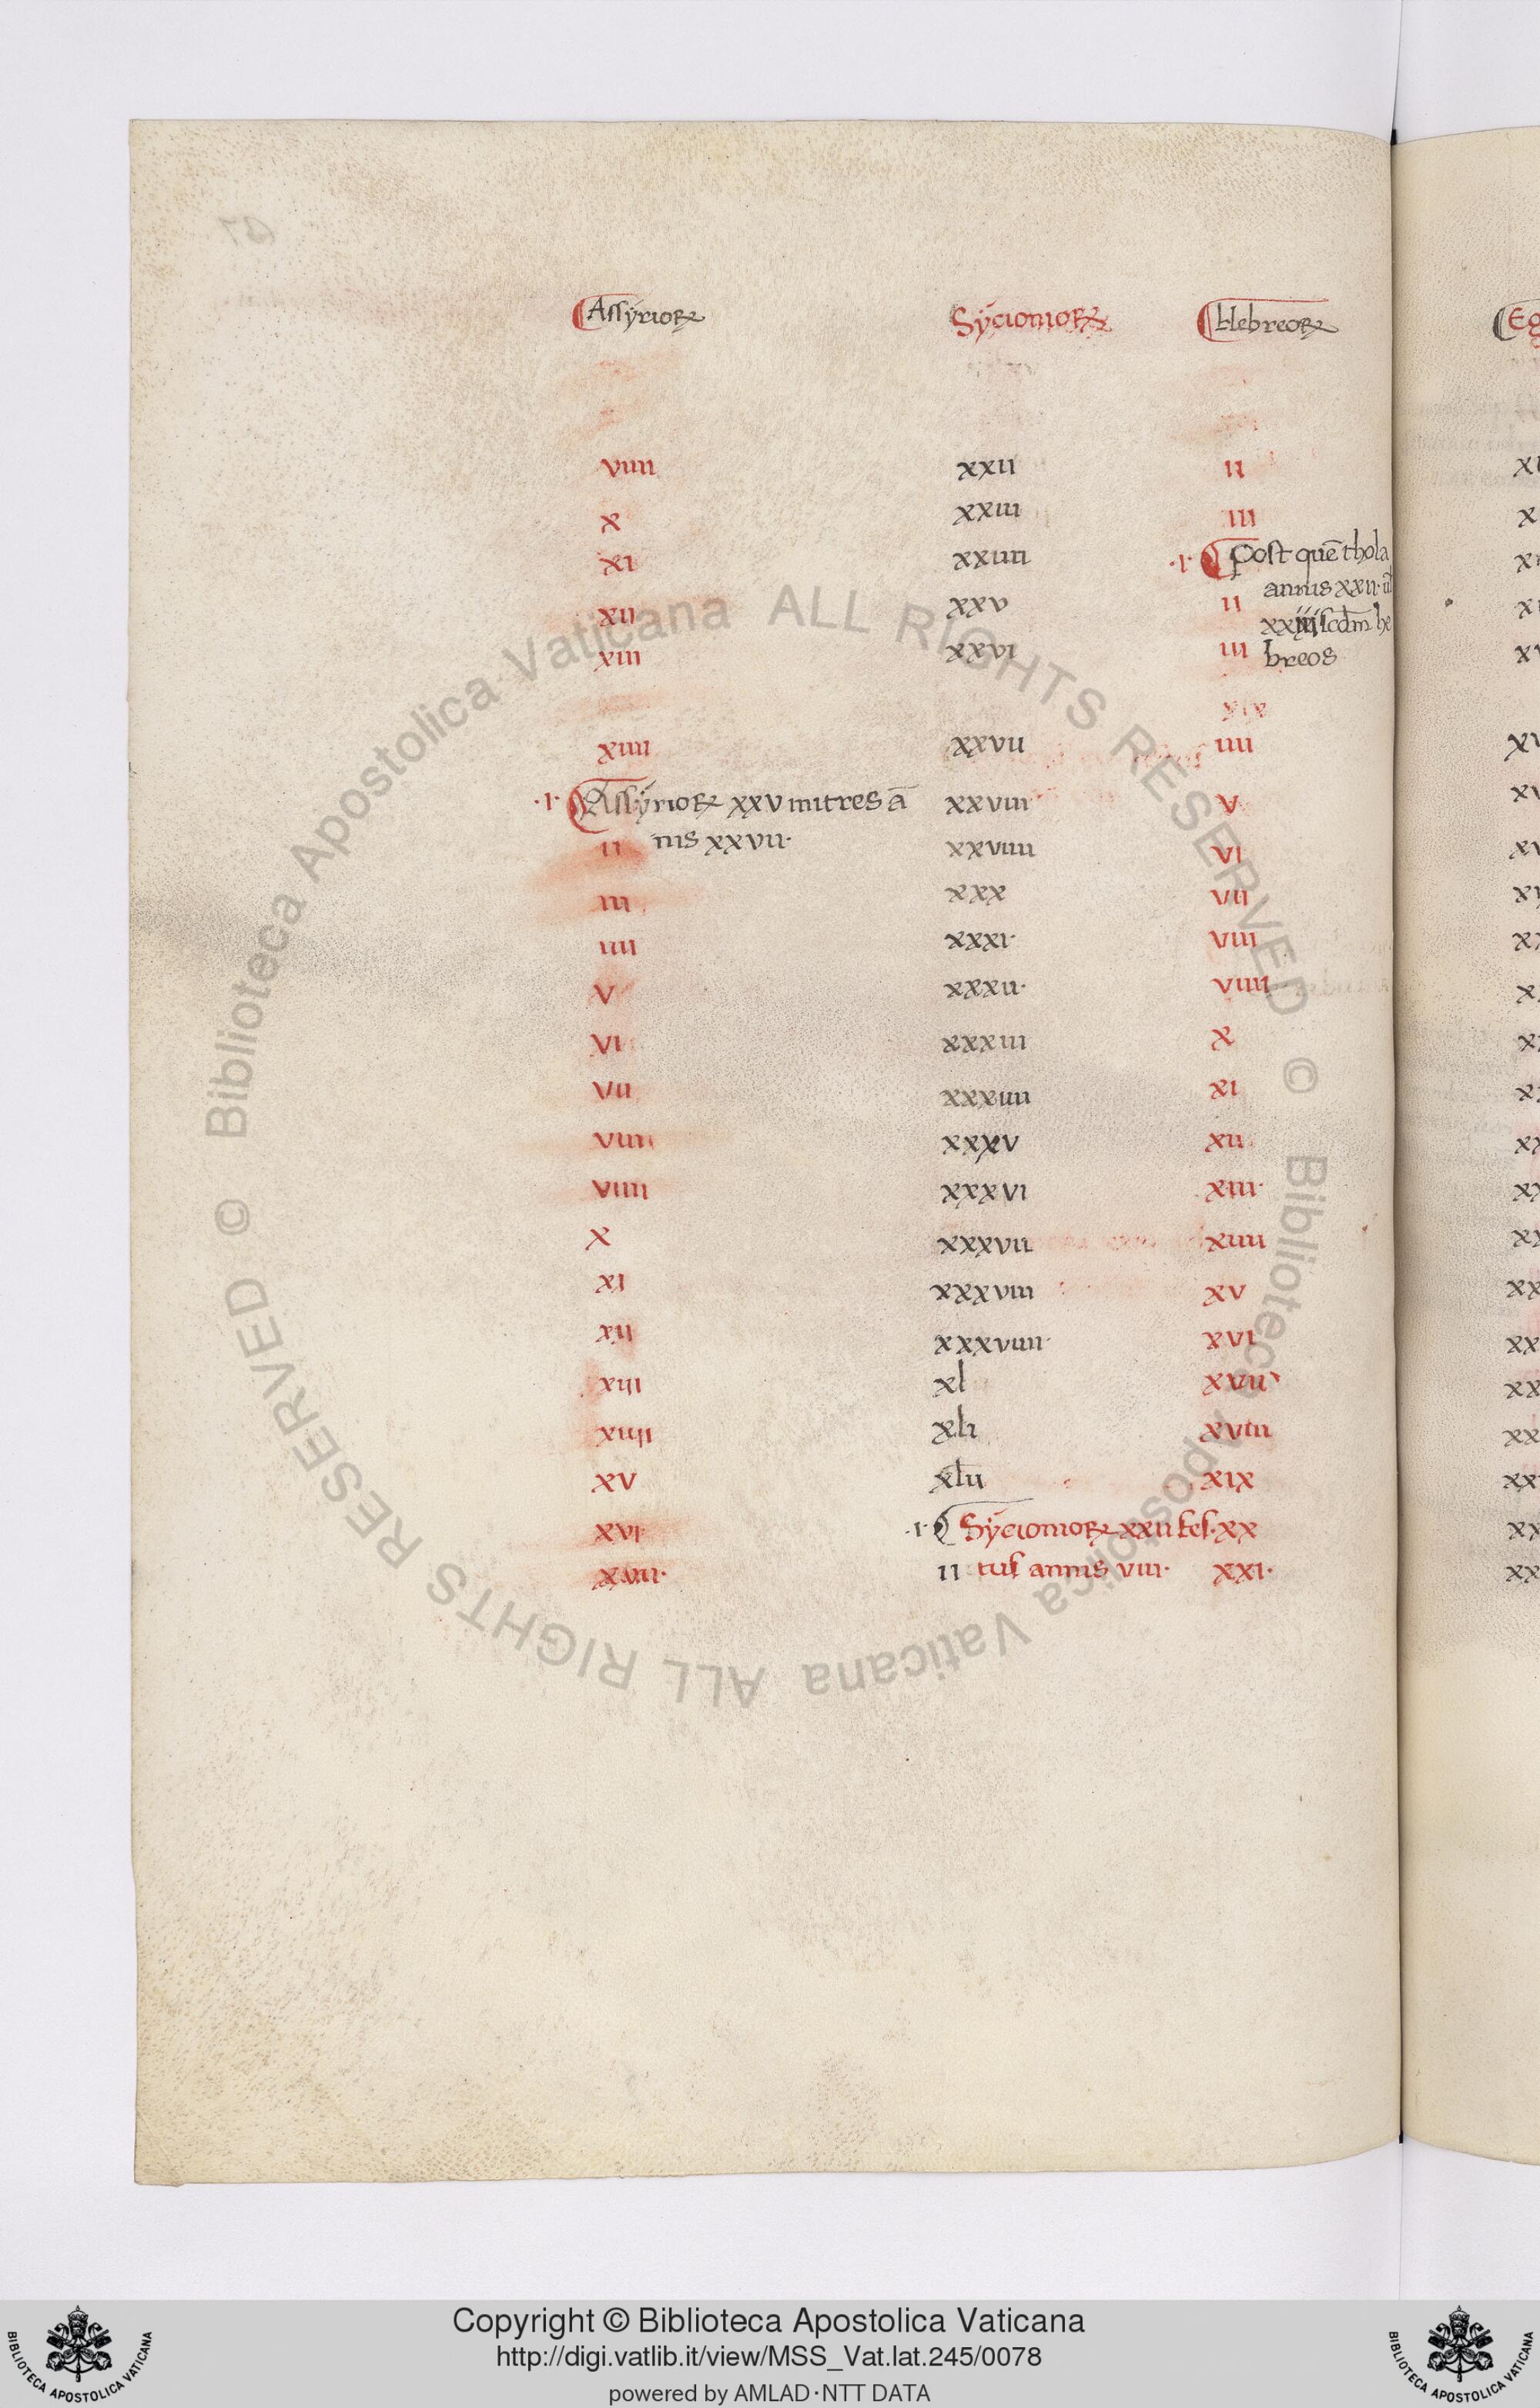 Assyrioꝝ Sycionioꝝ Hebreoꝝ Eg
viiii xxii ii
x xxiii iii x
xi xxiiii ·I· Post quē thola
annis xxii· ul̄
xii xxv ii
scdm̄ he
xiii xxvi iii breos
xiiii xxvii iiii
·I· Assyrioꝝ xxv mitres ā xxviii v
ii nis xxvii· xxviiii vi
iii xxx vii
iiii xxxi· viii
v xxxii· viiii
vi xxxiii x
vii xxxiiii xi
viii xxxv xii
viiii xxxvi xiii·
x xxxvii xiiii
xi xxxviii xv
xii xxxviiii· xvi
xiii xl xvii
xiiii xli xviii
xv xlii xix
xvi· ·I· Sycionioꝝ xxii ·xx
xvii· ii tus annis viii· xxi·
© Biblioteca Apostolica Vaticana ALL RIGHTS RESERVED © Biblioteca Apostolica Vaticana ALL RIGHTS RESERVED
Copyright © Biblioteca Apostolica Vaticana
http://digi.vatlib.it/view/MSS_Vat.lat.245/0078
powered by AMLAD·NTT DATA
BIBLIOTECA APOSTOLICA VATICANA
BIBLIOTECA APOSTOLICA VATICANA